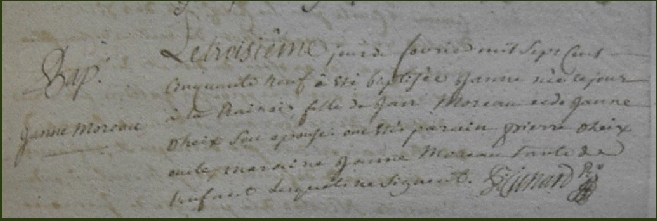 Bap.
Janne Moreau
Le troisième jour de fevrier mil sept cent
cinquante neuf à été baptisée Janne née ce jour
à la fille de Jean Moreau et de Janne
Dheix son epouse: ont été parain pierre Dheix
oncle, maraine Janne Moreau tante de
l'enfant lesquels ne signent.